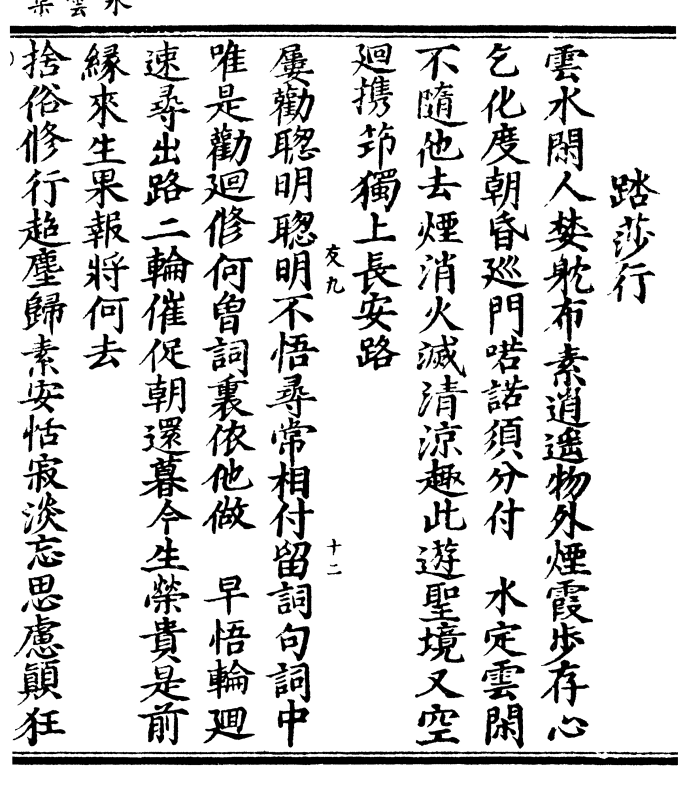 踏莎行
雲水閑人婪躭布素逍遥物外煙霞步存心
乞化度朝昏廵門喏諾須分付　水定雲閑
不隨他去煙消火滅清涼趣此遊聖境又空
廻携笻獨上長安路
友九　十二
屢勸聦明聦明不悟尋常相付留詞句詞中
唯是勸廻修何曽詞裏依他做　早悟輪廻
速尋出路二輪催促朝還暮今生榮貴是前
緣來生果報將何去
捨俗修行超塵歸素安恬寂淡忘思慮顛狂